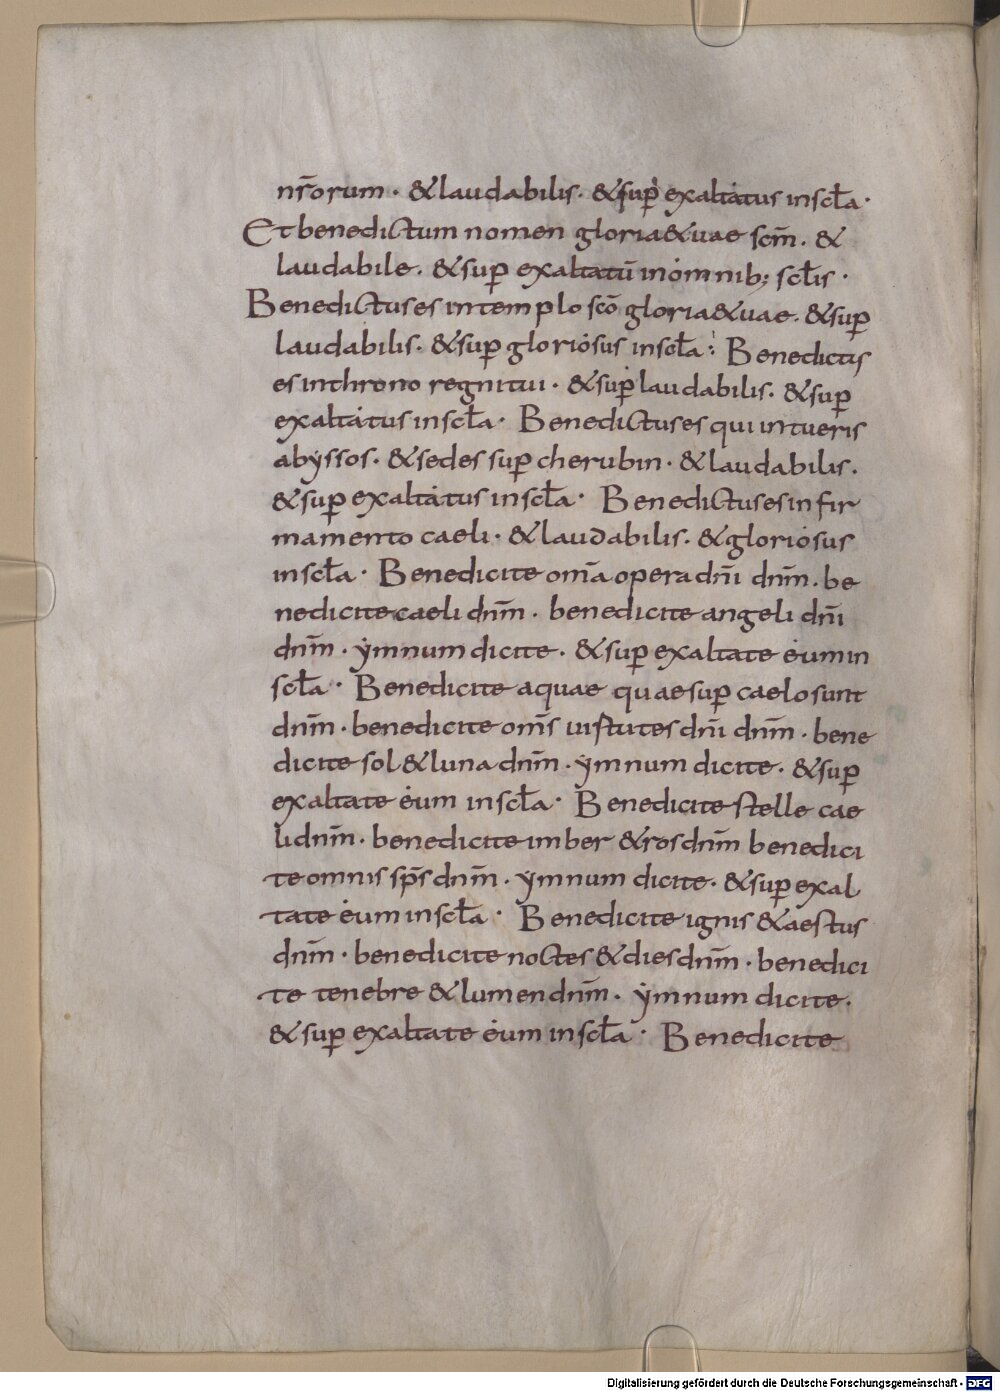 nr̄orum · & laudabilis · & sup̄ exaltatus inscl̄a ·
Et benedictum nomen gloria&uae scm̄ · &
laudabile · & sup̄ exaltatū inomnib; scl̄is ·
Benedictus es intemplo scō gloria&uae · & sup̄
laudabilis · & sup̄ gloriosus inscl̄a : Benedictus
es inthrono regni tui · & sup̄ laudabilis · & sup̄
exaltatus inscl̄a · Benedictus es qui intueris
abẏssos · & sedes sup̄ cherubin · & laudabilis ·
& sup̄ exaltatus inscl̄a · Benedictus es infir
mamento caeli · & laudabilis · & gloriosus
inscl̄a · Benedicite om̄a opera dn̄i dnm̄ · be
nedicite caeli dnm̄ · benedicite angeli dn̄i
dnm̄ · ẏmnum dicite · & sup̄ exaltate eum in
scl̄a · Benedicite aquae quae sup̄ caelo sunt
dnm̄ · benedicite om̄s uirtutes dn̄i dnm̄ · bene
dicite sol & luna dnm̄ · ẏmnum dicite · & sup̄
exaltate eum inscl̄a · Benedicite stelle cae
li dnm̄ · benedicite imber & ros dnm̄ benedici
te omnis sp̄s dnm̄ · ẏmnum dicite · & sup̄ exal
tate eum inscl̄a · Benedicite ignis & aestus
dnm̄ · benedicite noctes & dies dnm̄ · benedici
te tenebre & lumen dnm̄ · ẏmnum dicite ·
& sup̄ exaltate eum inscl̄a · Benedicite
Digitalisierung gefördert durch die Deutsche Forschungsgemeinschaft - DFG